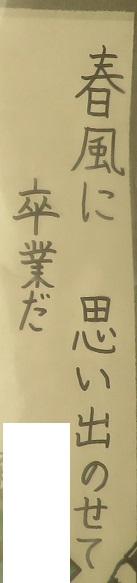 春風に　思い出のせて
卒業だ